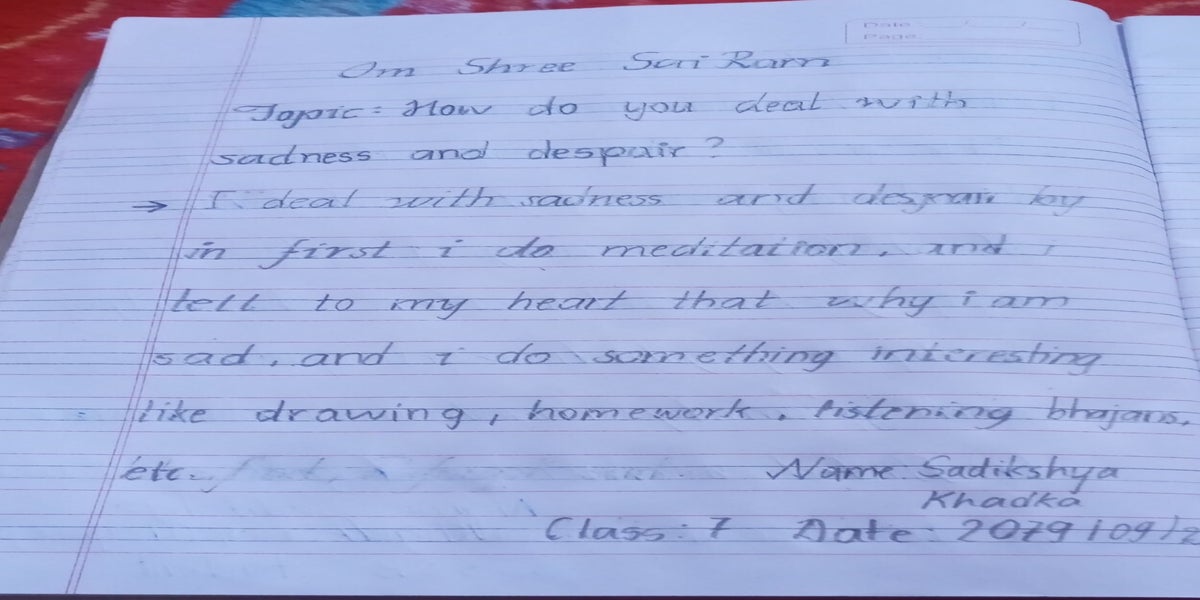 Date / /
Page
Om Shree Sai Ram
Topic: How do you deal with
sadness and despair?
→ I deal with sadness and despair by
in first i do meditation. and i
tell to my heart that why i am
sad. and i do something interesting
like drawing, homework. listening bhajans,
etc.
Name: Sadikshya
Khadka
Class: 7 Date: 2079/09/2